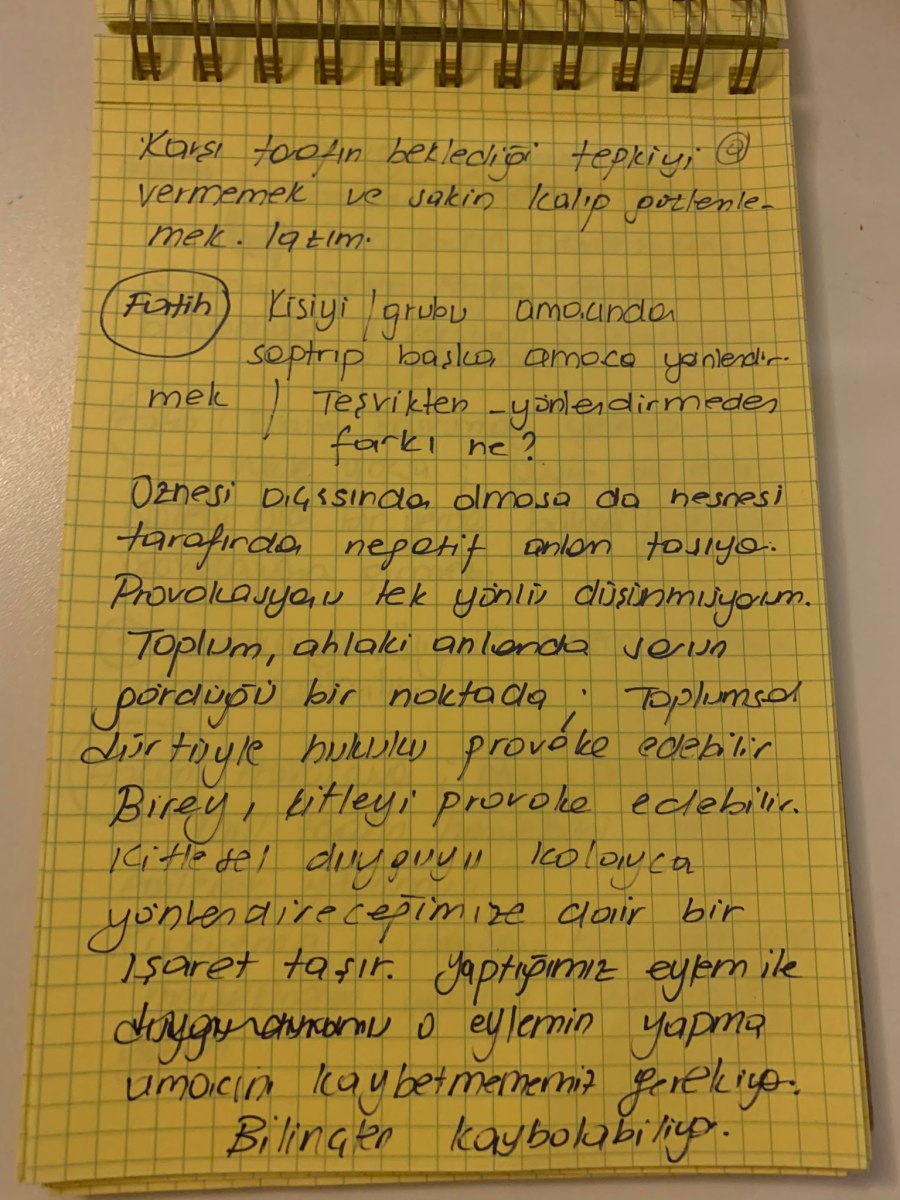 Karşı tarafın beklediği tepkiyi 9
vermemek ve sakin kalıp gözlenle-
mek. lazım.
Fatih Kisiyi / grubu amacında
saptırıp başka amaca yönlendir-
mek / Teşvikten - yönlendirmeden
farkı ne?
Öznesi açısında olmasa da nesnesi
tarafında negatif anlan tasıyo.
Provokasyonu tek yönlü düşünmüyorum.
Toplum, ahlaki anlamda sorun
gördüğü bir noktada; Toplumsal
dürtüyle hukuku provoke edebilir
Birey, kitleyi provoke edebilir.
Kitlesel duyguyu kolayca
yönlendireceğimize dair bir
işaret taşır. yaptığımız eylem ile
duygu durumu o eylemin yapma
amacın kaybetmememiz gerekiyo.
Bilinçten kaybolabiliyo.